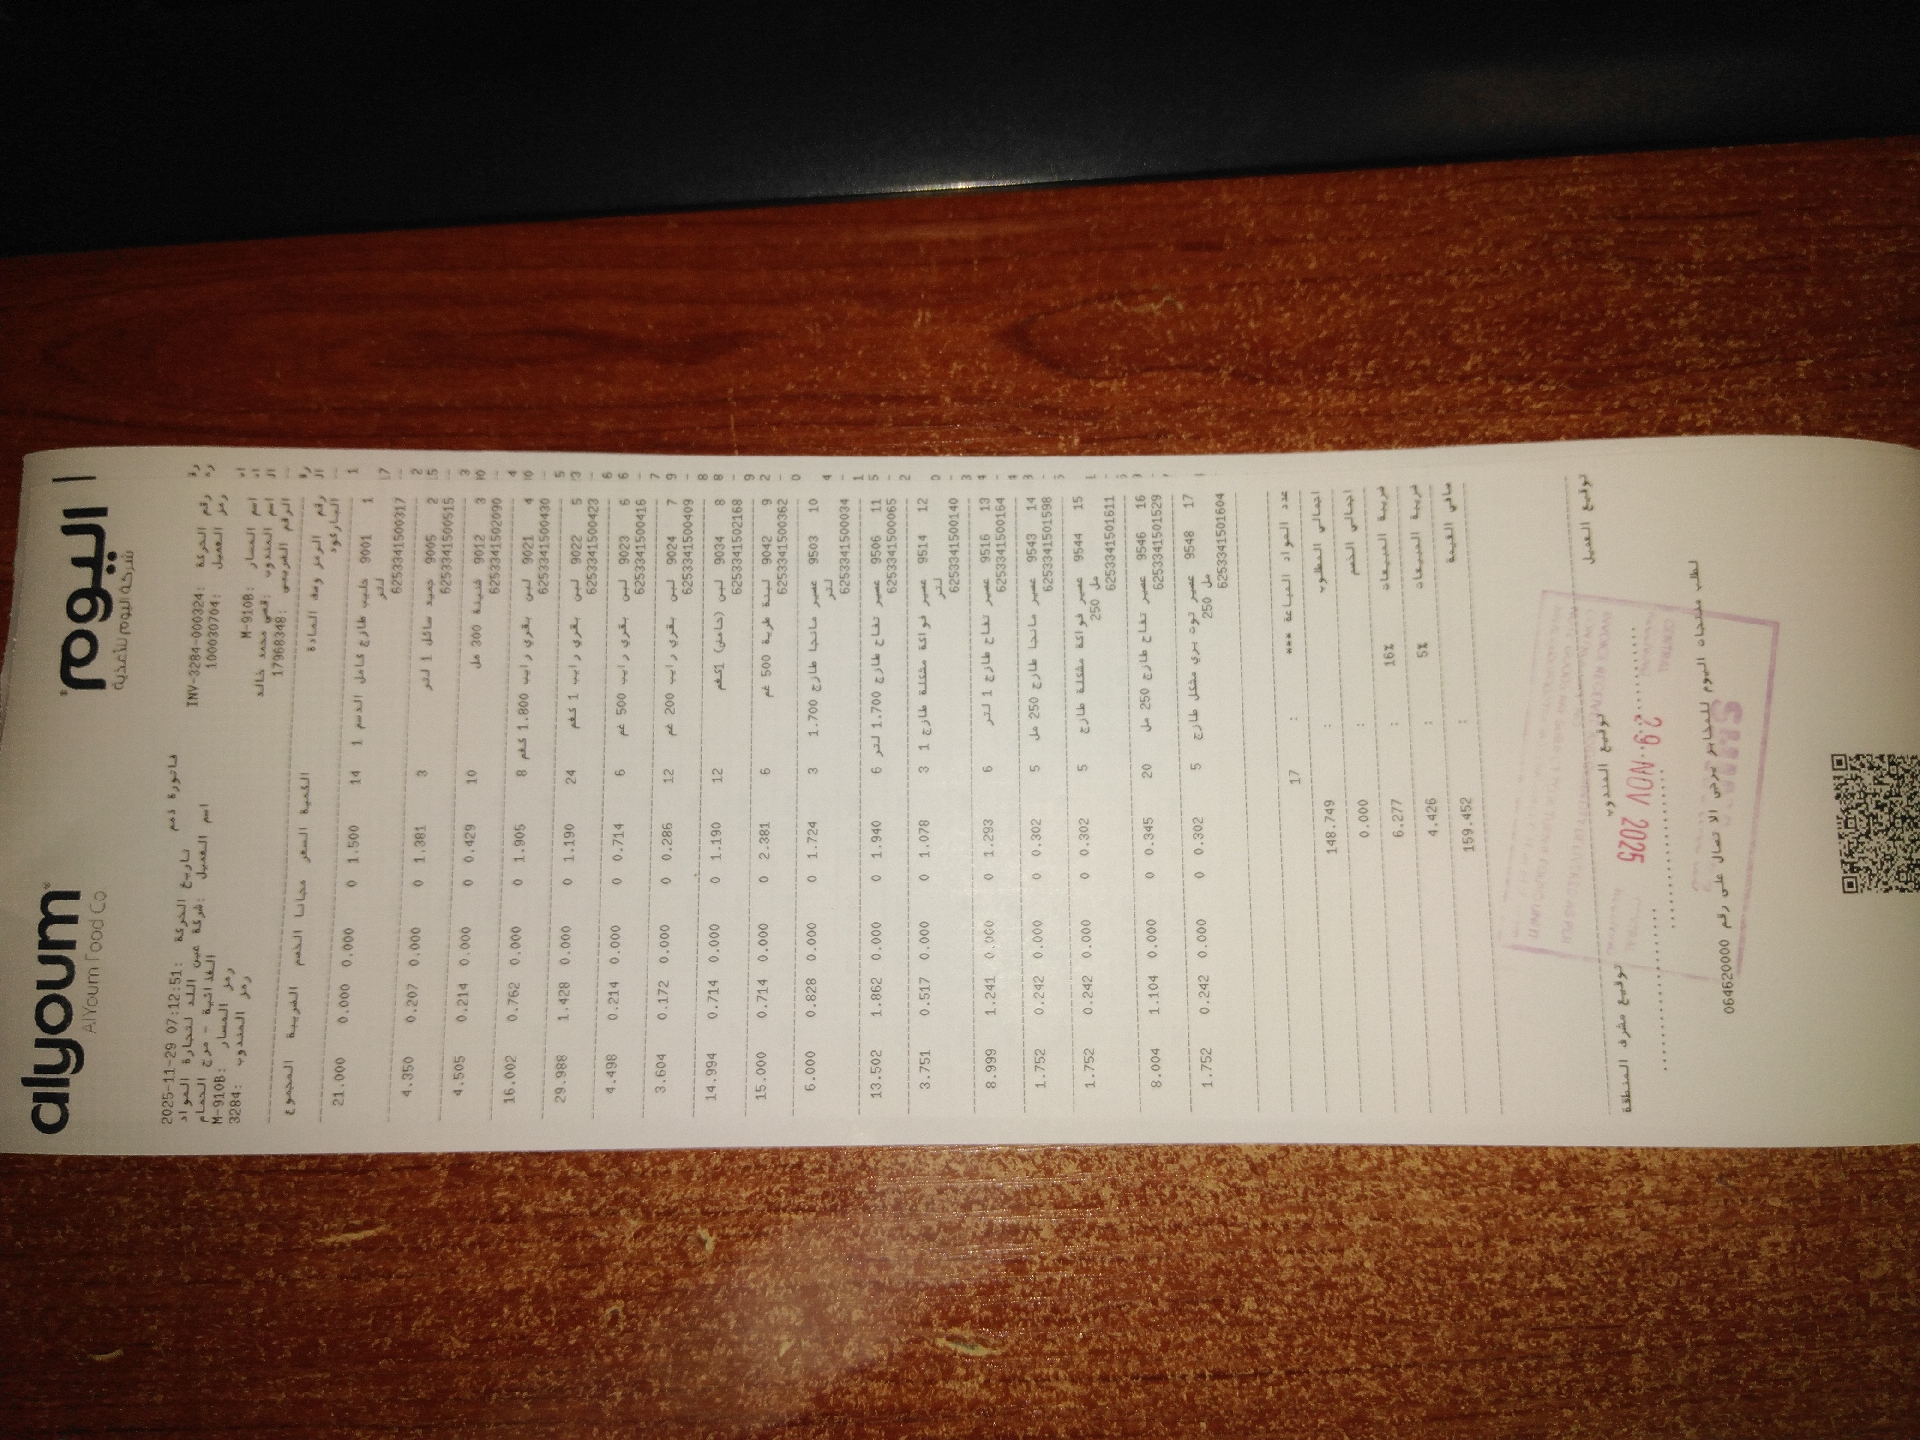 alyoum اليوم
AlYoum Food Co شركة اليوم للأغذية
فاتورة ذمم
رقم الحركة: INV-3284-000324 تاريخ الحركة: 2025-11-29 07:12:51
رمز العميل: 100030704 اسم العميل: شركة عين اللد لتجارة المواد
الغذائية - مرج الحمام
اسم المسار: M-910B رمز المسار: M-910B
اسم المندوب: قصي محمد خالد رمز المندوب: 3284
الرقم الضريبي: 17968348
رقم الرمز وصف المادة الكمية السعر مجانا الخصم الضريبة المجموع
الباركود
1 9001 حليب طازج كامل الدسم 1 14 1.500 0 0.000 0.000 21.000
لتر
6253341500317
2 9005 جميد سائل 1 لتر 3 1.381 0 0.000 0.207 4.350
6253341500515
3 9012 شنينة 300 مل 10 0.429 0 0.000 0.214 4.505
6253341502090
4 9021 لبن بقري رايب 1.800 كغم 8 1.905 0 0.000 0.762 16.002
6253341500430
5 9022 لبن بقري رايب 1 كغم 24 1.190 0 0.000 1.428 29.988
6253341500423
6 9023 لبن بقري رايب 500 غم 6 0.714 0 0.000 0.214 4.498
6253341500416
7 9024 لبن بقري رايب 200 غم 12 0.286 0 0.000 0.172 3.604
6253341500409
8 9034 لبن (حامض) 1كغم 12 1.190 0 0.000 0.714 14.994
6253341502168
9 9042 لبنة طرية 500 غم 6 2.381 0 0.000 0.714 15.000
6253341500362
10 9503 عصير مانجا طازج 1.700 3 1.724 0 0.000 0.828 6.000
لتر
6253341500034
11 9506 عصير تفاح طازج 1.700 لتر 6 1.940 0 0.000 1.862 13.502
6253341500065
12 9514 عصير فواكة مشكلة طازج 1 3 1.078 0 0.000 0.517 3.751
لتر
6253341500140
13 9516 عصير تفاح طازج 1 لتر 6 1.293 0 0.000 1.241 8.999
6253341500164
14 9543 عصير مانجا طازج 250 مل 5 0.302 0 0.000 0.242 1.752
6253341501598
15 9544 عصير فواكة مشكلة طازج 5 0.302 0 0.000 0.242 1.752
250 مل
6253341501611
16 9546 عصير تفاح طازج 250 مل 20 0.345 0 0.000 1.104 8.004
6253341501529
17 9548 عصير توت بري مشكل طازج 5 0.302 0 0.000 0.242 1.752
250 مل
6253341501604
عدد المواد المباعة *** : 17
اجمالي المطلوب : 148.749
اجمالي الخصم : 0.000
ضريبة المبيعات 16% : 6.277
ضريبة المبيعات 5% : 4.426
صافي القيمة : 159.452
توقيع العميل توقيع المندوب توقيع مشرف المنطقة
29 NOV 2025
CENTRAL
لطلب منتجات اليوم للمخابز يرجى الاتصال على رقم 064620000